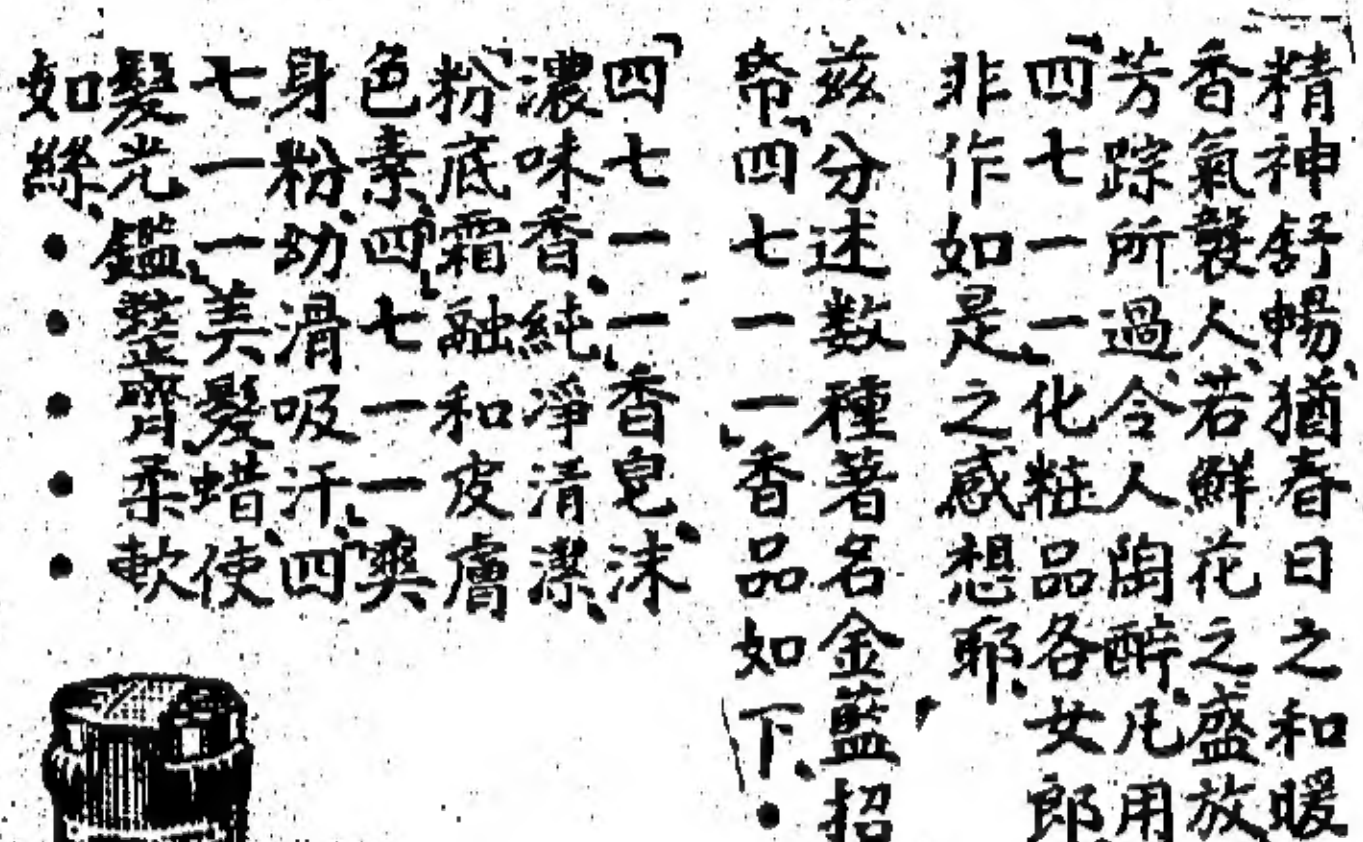 精神舒暢、猶春日之和暖
香氣襲人、若鮮花之盛放
芳踪所過、令人陶醉、凡用
「四七一一」化粧品各女郎
非作如是之感想耶、
茲分述数種著名金藍招
帋、「四七一一」香品如下、●
「四七一一」香皂、沫
濃味香、純淨清潔、
粉底霜融和皮膚
色素、「四七一一」爽
身粉、幼滑吸汗、「四
七一一」美髮蜡使
髮光鑑、整齊柔軟
如絲、●●●●●